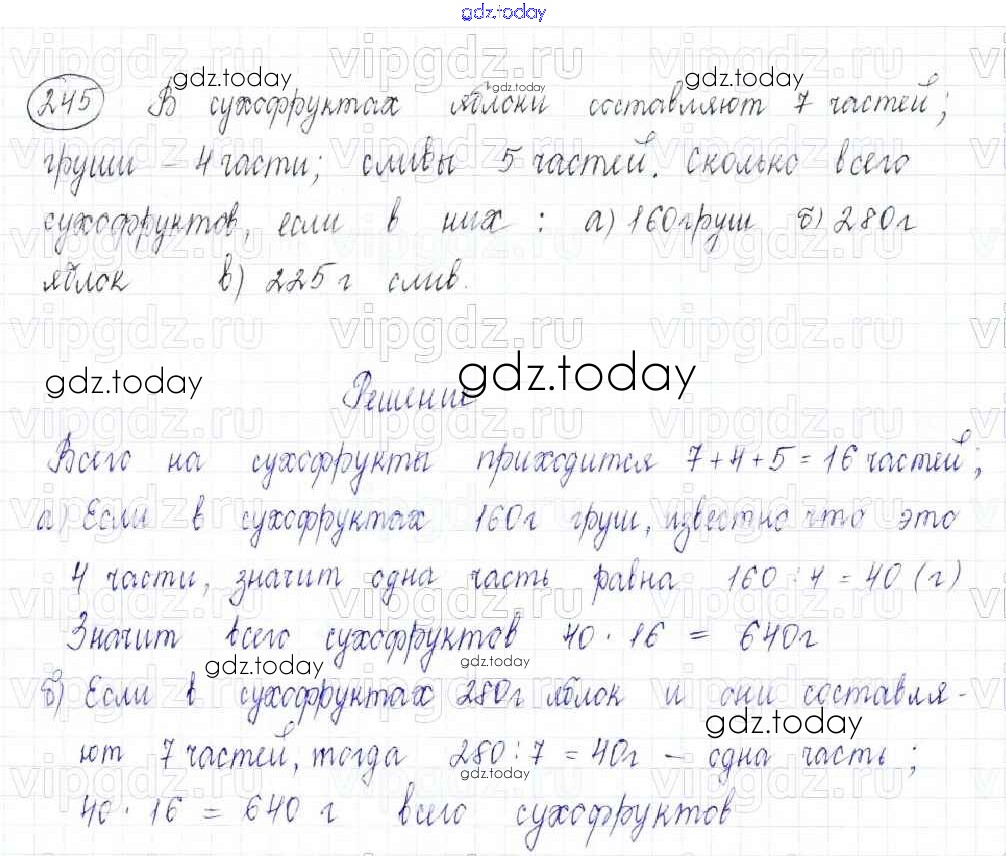 gdz.today
245 В сухофруктах яблоки составляют 7 частей;
груши - 4 части; сливы 5 частей. Сколько всего
сухофруктов, если в них : а) 160 груш б) 280 г
яблок в) 225 г слив.
gdz.today gdz.today
Решение
Всего на сухофрукты приходится 7+4+5=16 частей;
а) Если в сухофруктах 160 г груш, известно что это
4 части, значит одна часть равна 160 : 4 = 40 (г)
Значит всего сухофруктов 40 · 16 = 640 г
gdz.today gdz.today
б) Если в сухофруктах 280 г яблок и они составля-
gdz.today
ют 7 частей, тогда 280 : 7 = 40 г - одна часть ;
gdz.today
40 · 16 = 640 г всего сухофруктов